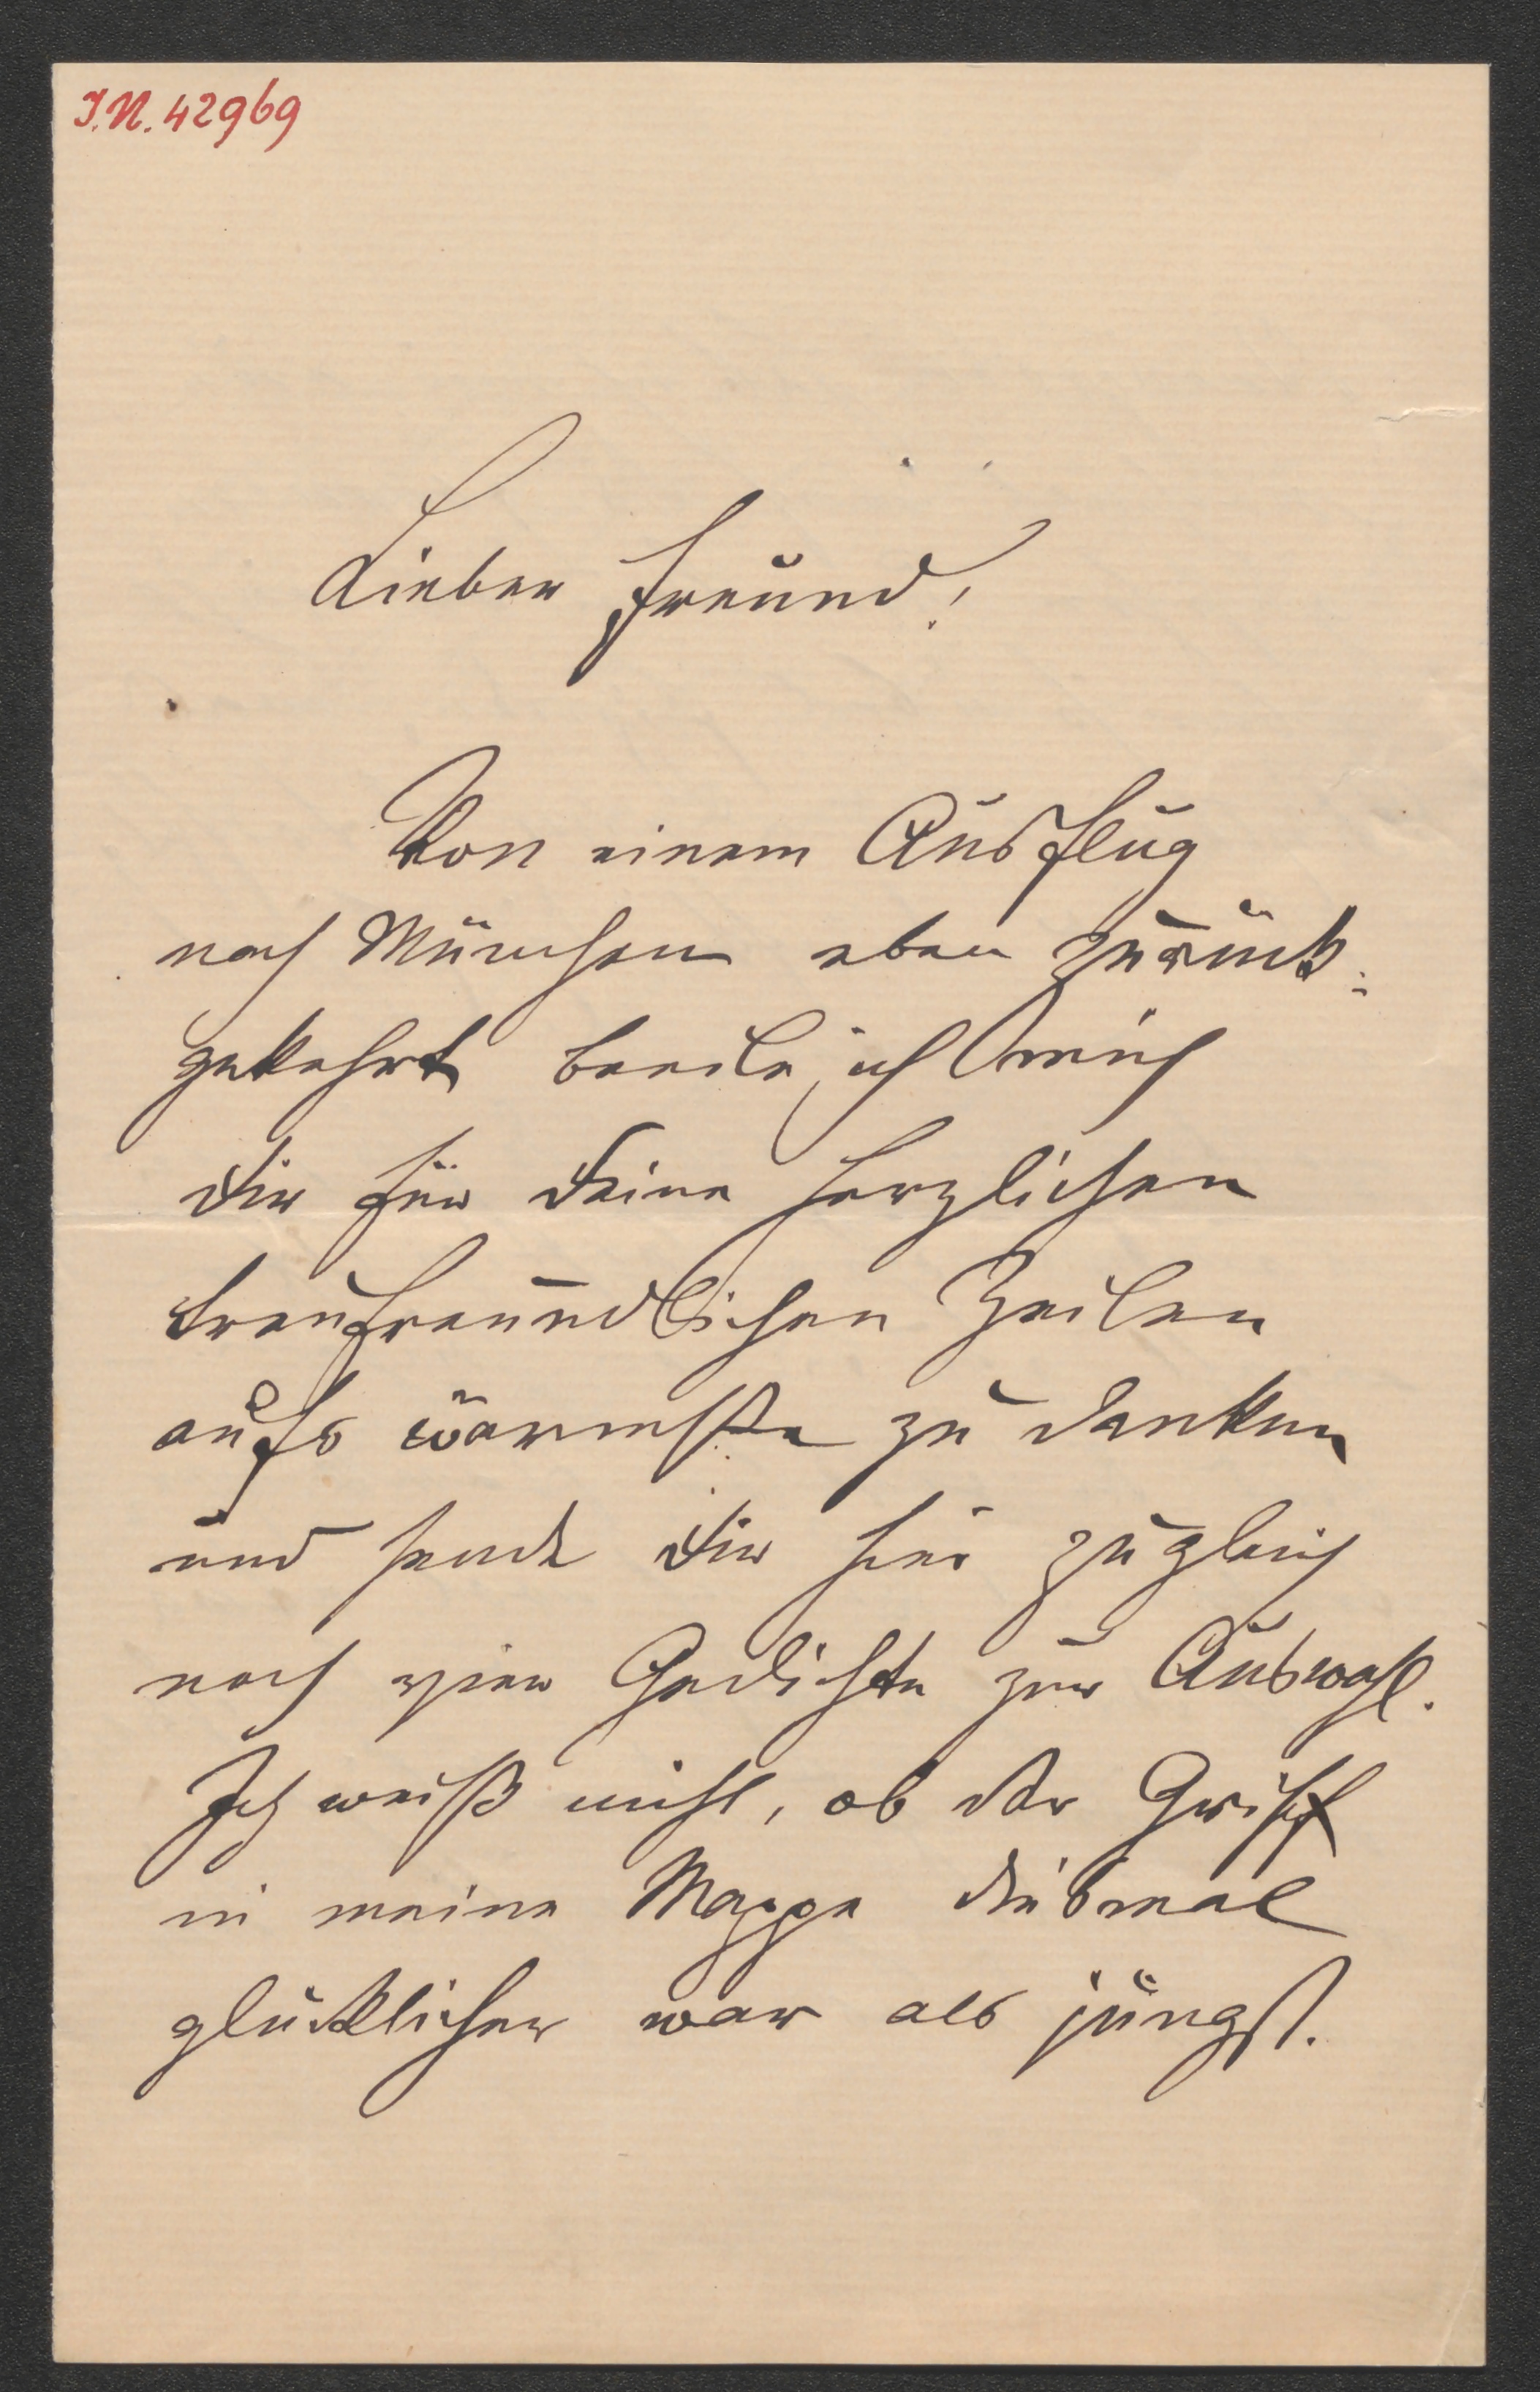 I.N. 42969
Lieber Freund!
Von einem Ausflug
nach München eben zurück-
gekehrt beeile ich mich
dir für deine herzlichen
treufreundlichen Zeilen
aufs wärmste zu danken
und sende dir hier zugleich
noch vier Gedichte zur Auswahl.
Ich weiß nicht, ob der Griff
in meine Mappe diesmal
glücklicher war als jüngst.